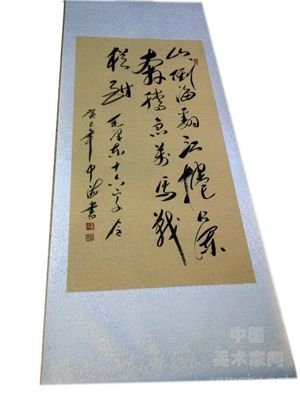 山倒海翻江捲巨澜
奔腾急萬馬战
猶酣 毛泽东十六字令
癸巳年中海书
中国
美术家网